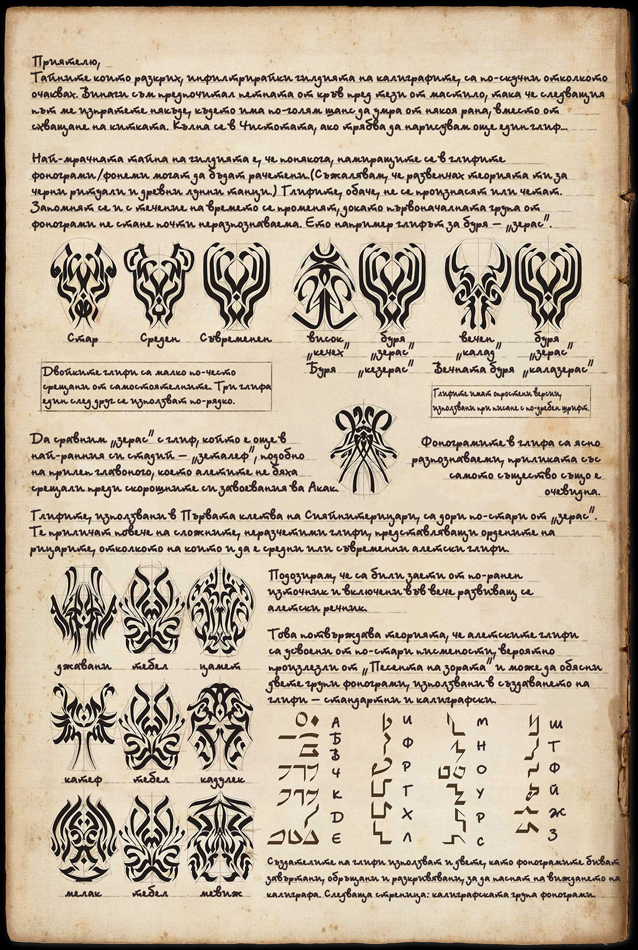 Приятелю,
Тайните които разкрих, инфилтрирайки гилдията на калиграфите, са по-скучни отколкото
очаквах. Винаги съм предпочитал петната от кръв пред тези от мастило, така че следващия
път ме изпратете някъде, където има по-голям шанс да умра от някоя рана, вместо от
схващане на китката. Кълна се в Чистотата, ако трябва да нарисувам още един глиф...
Най-мрачната тайна на гилдията е, че понякога, намиращите се в глифите
фонограми/фонеми могат да бъдат разчетени.(Съжалявам, че развенчах теорията ти за
черни ритуали и древни лунни танци.) Глифите, обаче, не се произнасят или четат.
Запомнят се и с течение на времето се променят, докато първоначалната група от
фонограми не стане почти неразпознаваема. Ето например глифът за буря – „зерас".
Стар Среден Съвременен висок буря вечен буря
„кечех" „зерас" „калад" „зерас"
Буря „кезерас" Вечната буря „калазерас"
Двойките глифи са малко по-често
срещани от самостоятелните. Три глифа
един след друг се използват по-рядко.
Глифите имат опростени версии,
използвани при писане с по-дребен шрифт.
Да сравним „зерас" с глиф, който е още в
най-ранния си стадий – „зеталеф", подобно
на прилеп главоного, което алетите не бяха
срещали преди скорошните си завоевания ва Акак.
Фонограмите в глифа са ясно
разпознаваеми, приликата със
самото същество също е
очевидна.
Глифите, използвани в Първата клетва на Сияйнитерицари, са дори по-стари от „зерас".
Те приличат повече на сложните, неразчетими глифи, представляващи ордените на
рицарите, отколкото на които и да е средни или съвременни алетски глифи.
Подозирам, че са били заети от по-ранен
източник и включени във вече развиващ се
алетски речник.
Това потвърждава теорията, че алетските глифи
са усвоени от по-стари писмености, вероятно
произлезли от „Песента на зората" и може да обясни
двете групи фонограми, използвани в създаването на
глифи – стандартни и калиграфски.
джавани тебел цамет
катеф тебел кадулек
мелак тебел мевиж
А И М Ш
Б Ф Н Т
В
Ч Р О Ф
К Г У Й
D Х Р Ж
Е Л С З
Създателите на глифи използват и двете, като фонограмите биват
завъртани, обръщани и разкривявани, за да паснат на виждането на
калиграфа. Следваща стреница: калиграфската група фонограми.